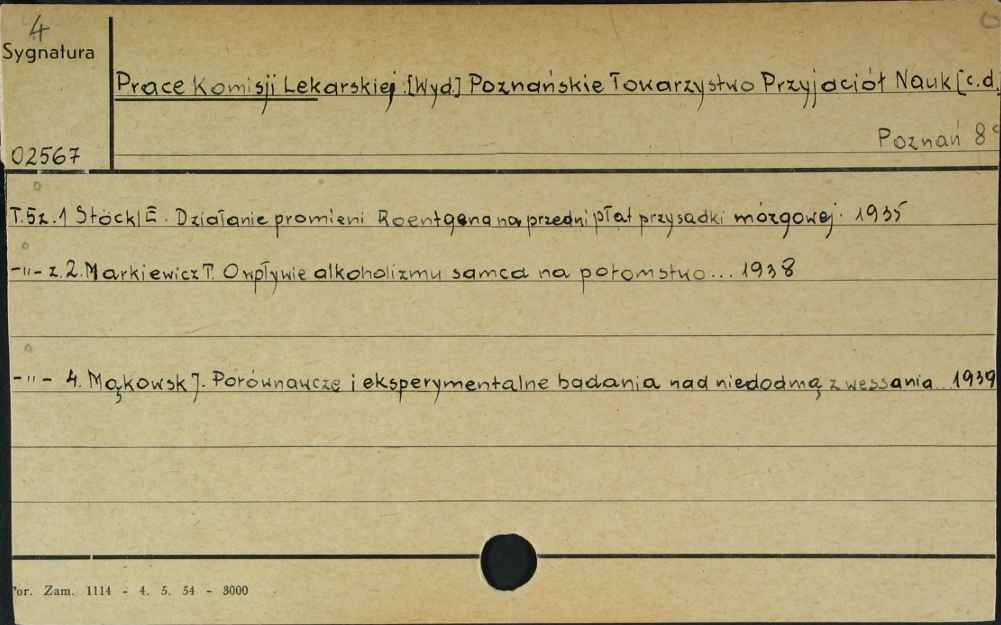 4
Sygnatura
Prace Komisji Lekarskiej. [Wyd.] Poznańskie Towarzystwo Przyjaciół Nauk [c.d.
Poznań 8°
02567
T.5z.1 Stöckl E. Działanie promieni Roentgena na przedni płat przysadki mózgowej. 1935
-"- z.2. Markiewicz T. O wpływie alkoholizmu samca na potomstwo... 1938
-"- 4. Mąkowsk J. Porównawcze i eksperymentalne badania nad niedodmą z wessania.. 1939
For. Zam. 1114 - 4. 5. 54 - 3000